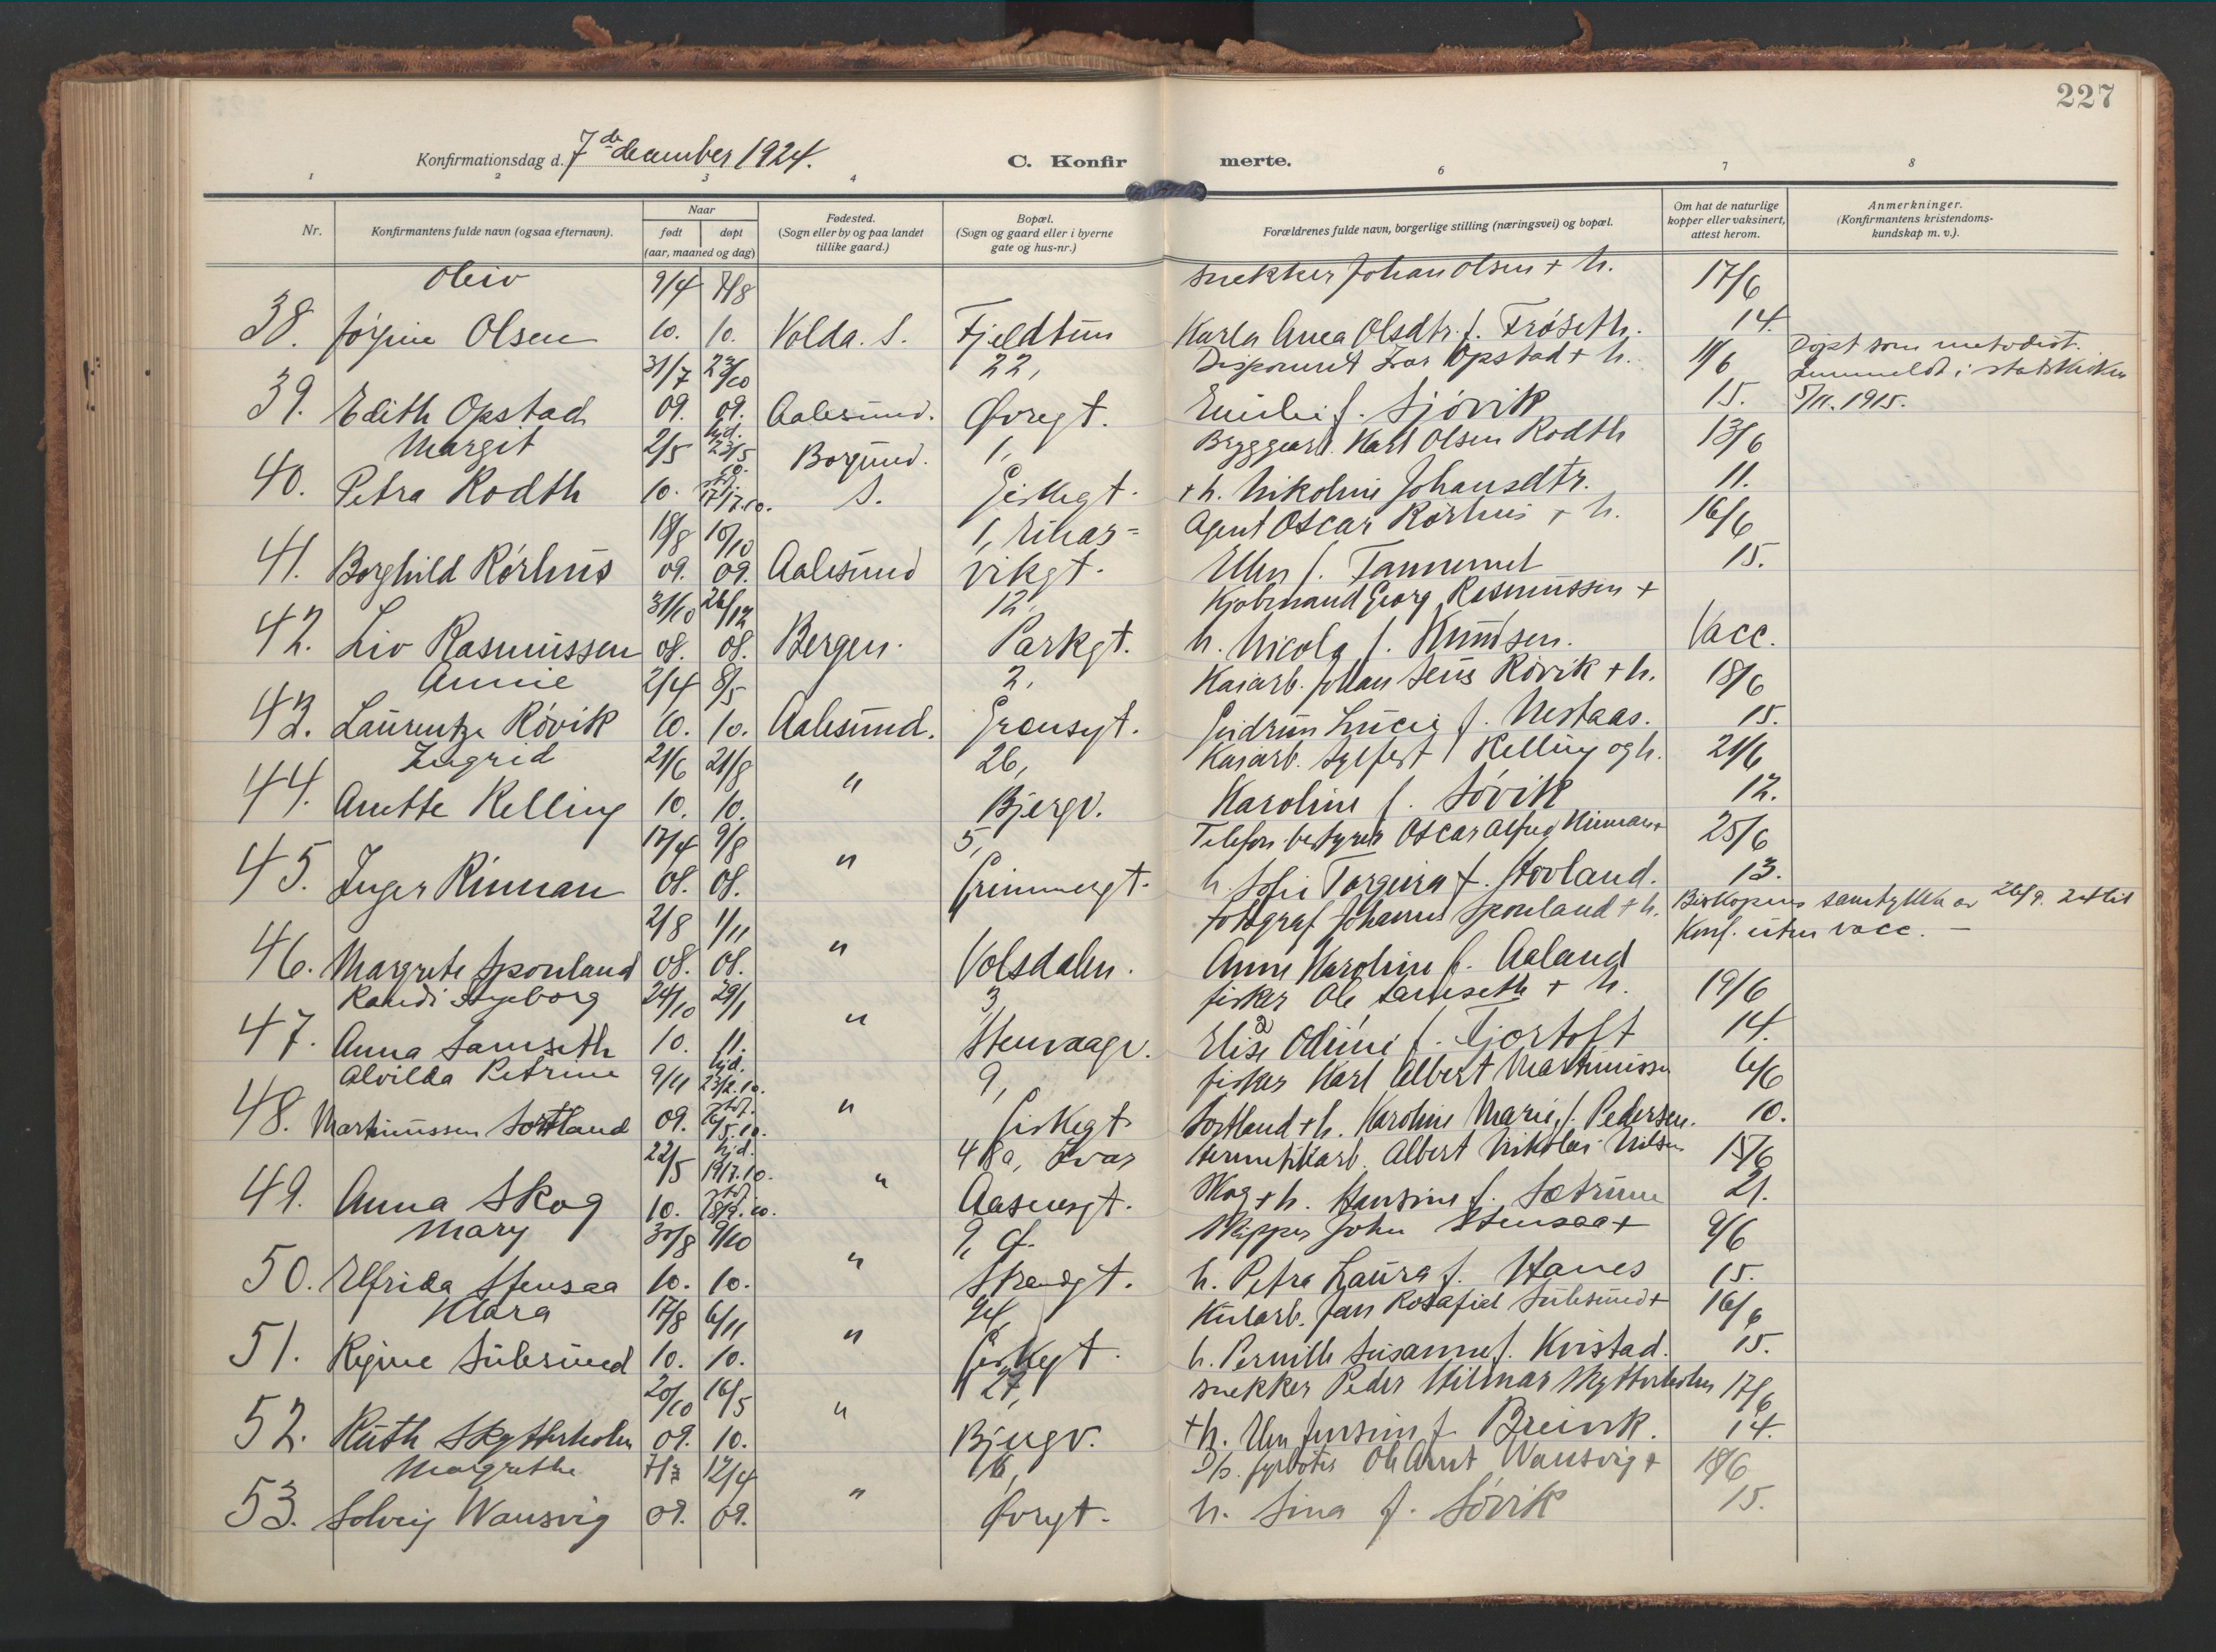 227
Konfirmationsdag d. 7de december 1924.
C. Konfirmerte.
1 2 3 4 6 7 8
Nr.
Konfirmantens fulde navn (ogsaa efternavn).
Naar
født døpt
(aar, maaned og dag)
Fødested.
(Sogn eller by og paa landet
tillike gaard.)
Bopæl.
(Sogn og gaard eller i byerne
gate og hus-nr.)
Forældrenes fulde navn, borgerlige stilling (næringsvei) og bopæl.
Om hat de naturlige
kopper eller vaksinert,
attest herom.
Anmerkninger.
(Konfirmantens kristendoms-
kundskap m. v.).
9/4 7/8 snekker Johan Olsen + h. 17/6
38. Olsen 10. 10. Volda. S. Fjeldtun Karla Anea Olsdtr. f. Frøseth. 14.
31/7 23/10 22, Disponent Opstad + h. 11/6 Døpt som metodist.
39. Edith Opstad 09. 09. Aalesund. Øvregt. Emilie f. Sjøvik 15. Innmeldt i statskirken
5/11. 1915.
Margit 2/5 hjd. 23/5 10. Borgund. 1, Bryggearb. Karl Olsen Rodth 13/6
40. Petra Rodth 10. 17/7.10. S. Giskegt. + h. Nikoline Johansdtr. 11.
18/8 10/10 1, Einar= Agent Oscar Rørhus + h. 16/6
41. Borghild Rørhus 09. 09. Aalesund vikgt. Ellen f. 15.
31/10 26/12 12, Kjøbmand Georg Rasmussen +
42. Liv Rasmussen 08. 08. Bergen. Parkgt. h. Nicola f. Knudsen. Vacc.
Annie 2/4 8/5 2, Kaiarb. Johan Røvik + h. 18/6
43. Laurentze Røvik 10. 10. Aalesund. Grensegt. Gudrun Lucie f. Nestaas. 15.
Ingrid 21/6 21/8 26, Kaiarb. Sylfest Kelling og h. 21/6
44. Anette Kelling 10. 10. " Bjergv. Karoline f. Søvik 12.
12/4 9/8 5, Telefonbestyrer Oscar Alfred Kinman + 25/6
45. Inger Kinman 08. 08. " Grimmergt. h. Sofie Torgeira f. Hovland. 13.
2/8 1/11 fotograf Johannes Sponland + h. Biskopens samtykke av 26/9. 24 til
46. Margrete Sponland 08. 08. " Volsdalen. Anne Karoline f. Aaland Konf. uten vacc. —
Randi Ingeborg 24/10 29/1 3, fisker Ole Samseth + h. 19/6
47. Anna Samseth 10. 11. " Stenvaagv. Elise Oline f. Fjørtoft 14.
Alvilda Petrine 9/11 hjd. 23/2.10. 9, fisker Karl Albert Martinussen 6/6
48. Martinussen Sortland 09. 16/5.10. " Giskegt. Sortland + h. Karoline Marie f. Pedersen. 10.
22/5 hjd. 19/7.10. 48a, Ivar hermetikarb. Albert Nikolai Nilsen 15/6
49. Anna Skog 10. 18/9.10. " Aasensgt. Skog + h. Hansine f. Sætrum 21.
Mary 30/8 9/10 9, Skipper John Stensaa + 9/6
50. Elfrida Stensaa 10. 10. " Strandgt. h. Petra Laura f. Hanes 15.
Klara 17/8 6/11 Kularb. Jan Sulesund + 16/6
51. Regine Sulesund 10. 10. " Giskegt. h. Pernille Susanne f. Kvistad. 15.
20/10 16/5 27, snekker Peder Hilmar Skytterholm 17/6
52. Ruth Skytterholm 09. 10. " Bjergv. + h. f. Breivik. 14.
Margrethe 7/3 12/4 16, D/s. fyrbøter Ole Arnt Wansvig + 18/6
53. Solveig Wansvig 09. 09. " Øvregt. h. Sina f. Søvik 15.